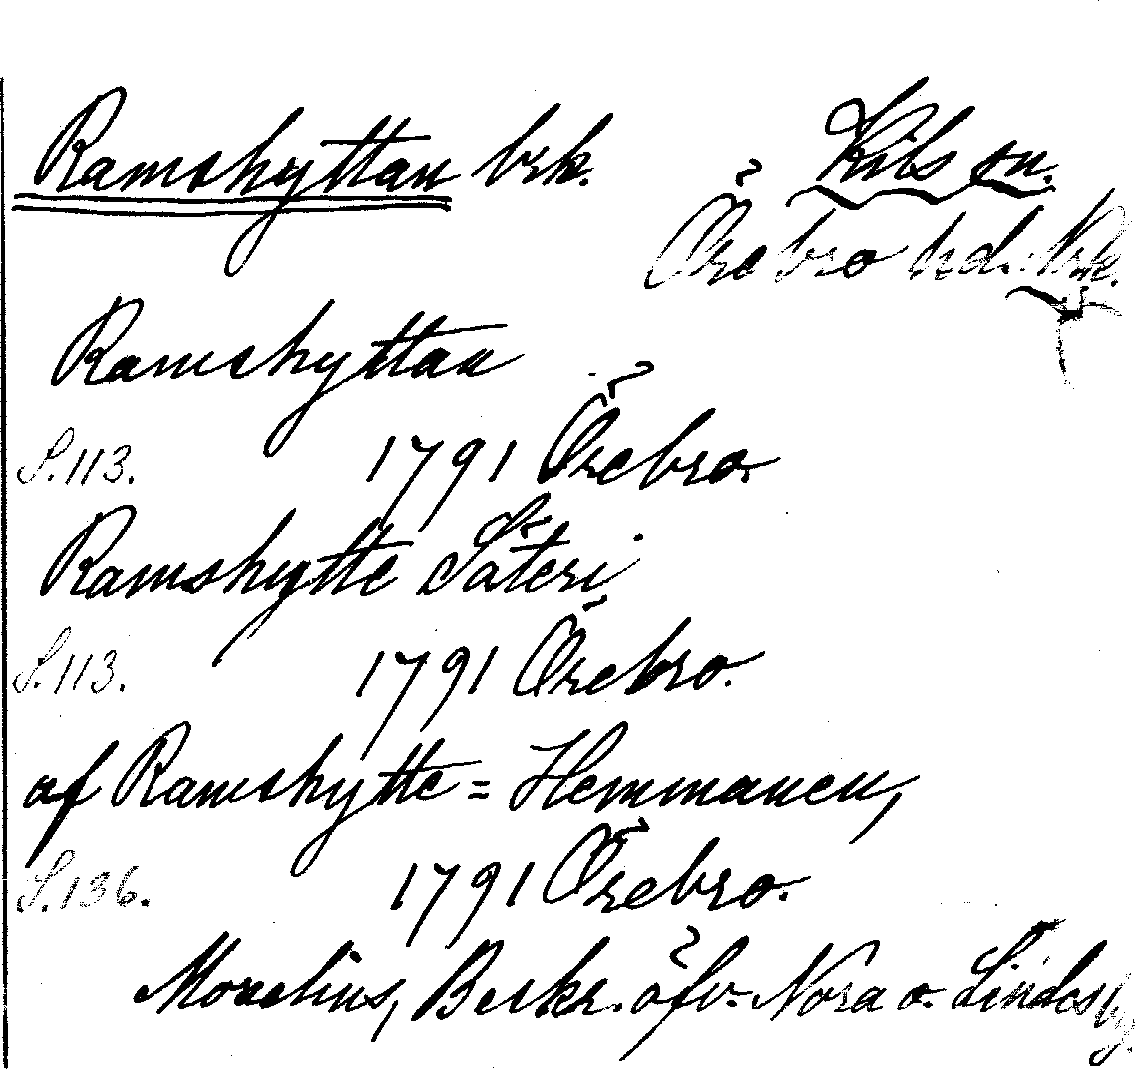 Ramshyttan brk. Kils sn.
Örebro hd. Nrk.
Ramshyttan
S. 113. 1791 Örebro.
Ramshytte Säteri
S. 113. 1791 Örebro.
af Ramshytte = Hemmanen,
S. 136. 1791 Örebro.
Morelius, Beskr. öfv. Nora o. Lindesby.